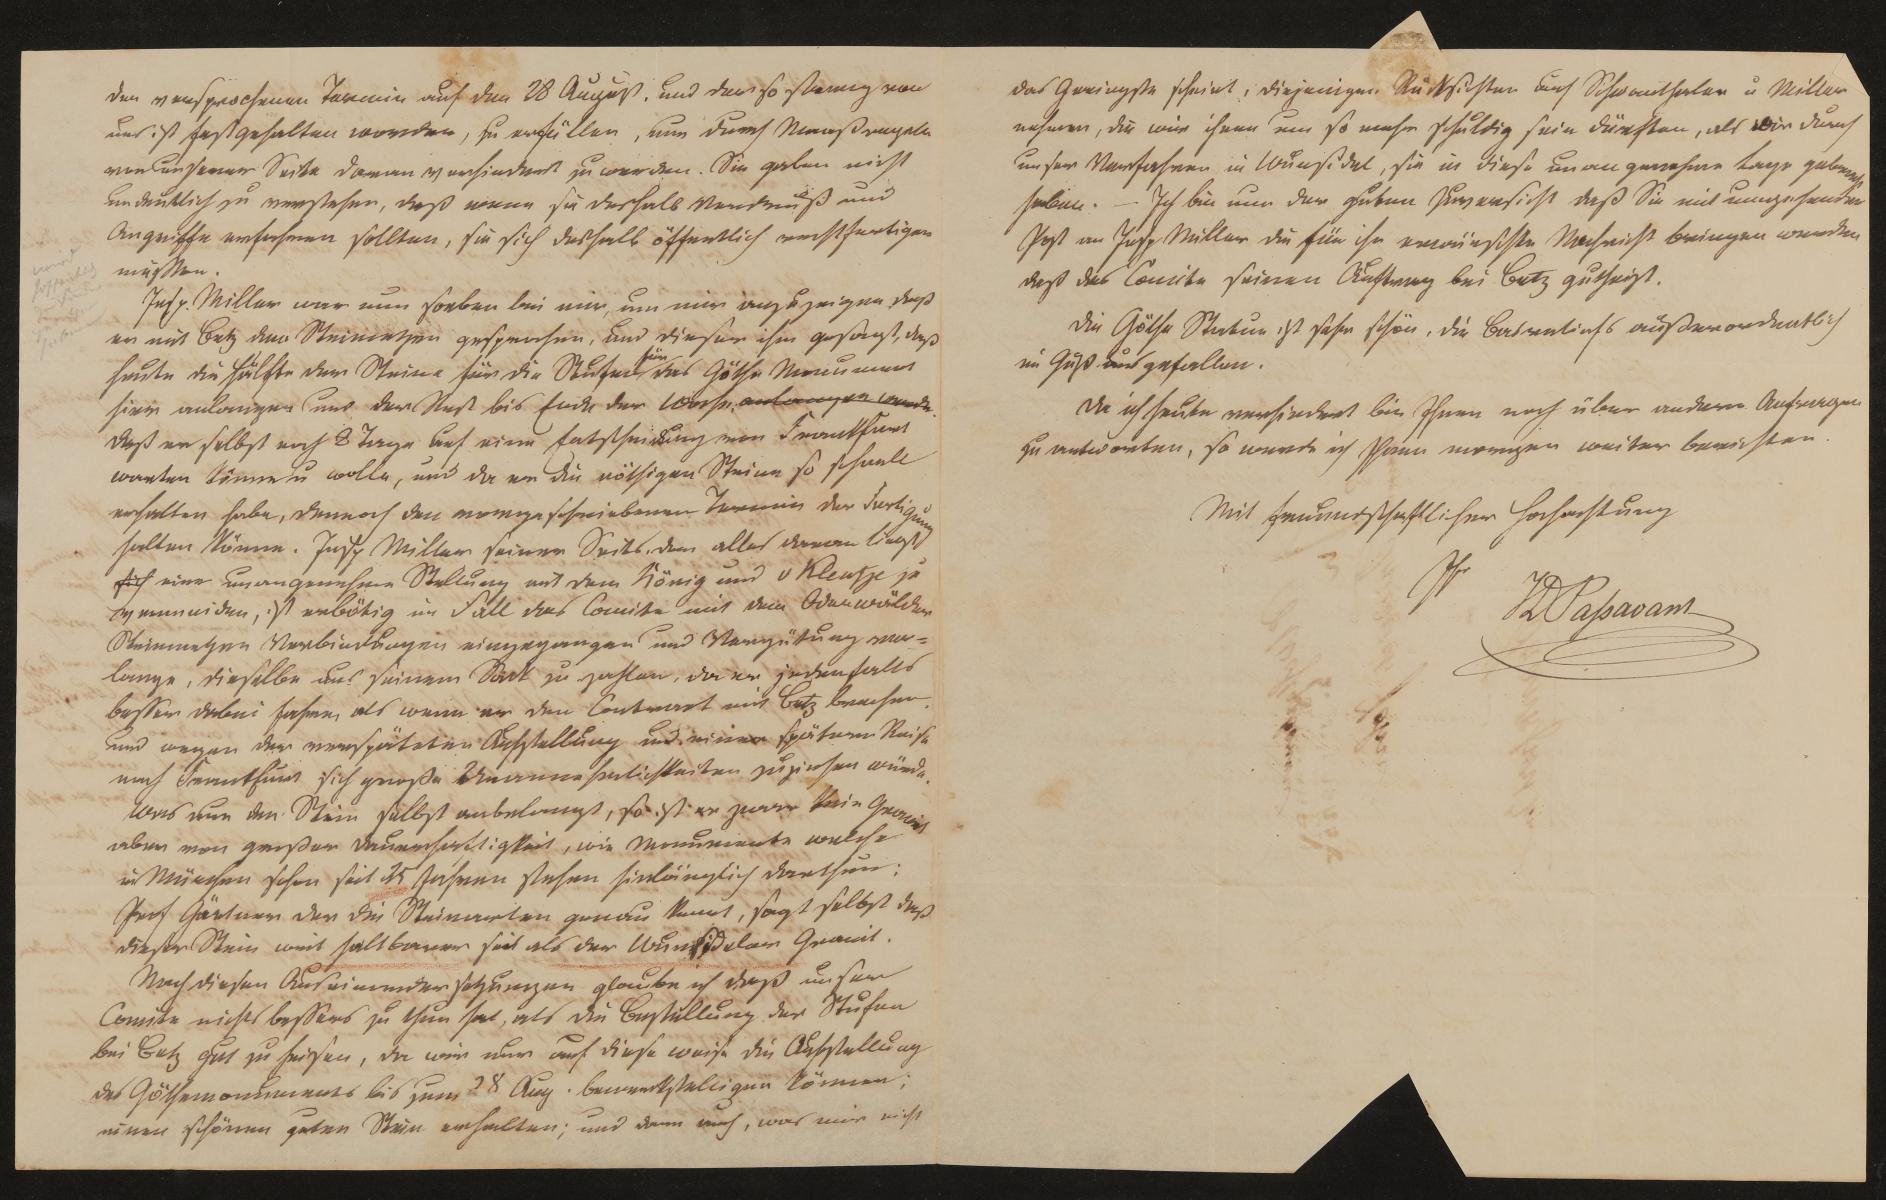 den versprochenen Termin auf den 28 August, und der so streng von
uns ist festgehalten worden, zu erfüllen, nun durch Maaßregeln
von unserer Seite daran verhindert zu werden. Sie gaben nicht
undeutlich zu verstehen, daß wenn sie deshalb Verdruß und
Angriffe erfahren sollten, sie sich deshalb öffentlich rechtfertigen
müßten.
Insp. Miller war nun soeben bei mir, um mir anzuzeigen daß
er mit Betz dem Steinmetzen gesprochen, und dieser ihm gesagt, daß
heute die Hälfte der Steine für die Stufen für das Göthe Monument
hier anlangen und der Rest bis Ende der Woche anlangen werde.
daß er selbst noch 8 Tage auf eine Entscheidung von Frankfurt
warten könne u wolle, und da er die nöthigen Steine so schnell
erhalten habe, dennoch den vorgeschriebenen Termin der Fertigung
halten könne. Insp Miller seiner Seits, dem alles daran liegt
sich einer unangenehmen Stellung mit dem König und v Klentze zu
vermeiden, ist erbötig im Fall das Comite mit dem Odenwälder
Steinmetzen Verbindungen eingegangen und Vergütung ver-
lange, dieselbe aus seinem Sack zu zahlen, da er jedenfalls
besser dabei fahre, als wenn er den Contract mit Betz breche,
und wegen der verspäteten Aufstellung und einer spätern Reise
nach Frankfurt sich große Unannehmlichkeiten zuziehen würde.
Was nun den Stein selbst anbelangt, so ist er zwar kein Granit
aber von großer Dauerhaftigkeit, wie Monumente welche
in München schon seit 25 Jahren stehen hinlänglich darthun;
Prof Gärtner der die Steinarten genau kennt, sagt selbst daß
dieser Stein weit haltbarer sei als der Wunsidelor Granit.
Nach diesen Auseinandersetzungen glaube ich daß unser
Comite nichts bessers zu thun hat, als die Bestellung der Stufen
bei Betz gut zu heisen, da wir nur auf diese weise die Aufstellung
des Göthemonuments bis zum 28 Aug. bewerkstelligen können;
einen schönen guten Stein erhalten; und dann auch, was mir nicht
das Geringste scheint, diejenigen Rücksichten auf Schwanthaler u Miller
nehmen, die wir ihnen um so mehr schuldig sein dürften, als wir durch
unser Verfahren in Wunsidel, sie in diese unangenehme Lage gebracht
haben. – Ich bin nun der guten Zuversicht daß Sie mit umgehender
Post an Insp. Miller die für ihn erwünschte Nachricht bringen werden
daß das Comite seinen Auftrag bei Betz gutheist.
Die Göthe Statue ist sehr schön, die Basreliefs außerordentlich
im Guß ausgefallen.
Da ich heute verhindert bin Ihnen noch über andere Anfragen
zu antworten, so werde ich Ihnen morgen weiter berichten.
Mit freundschaftlicher Hochachtung
Ihr
JDPassavant